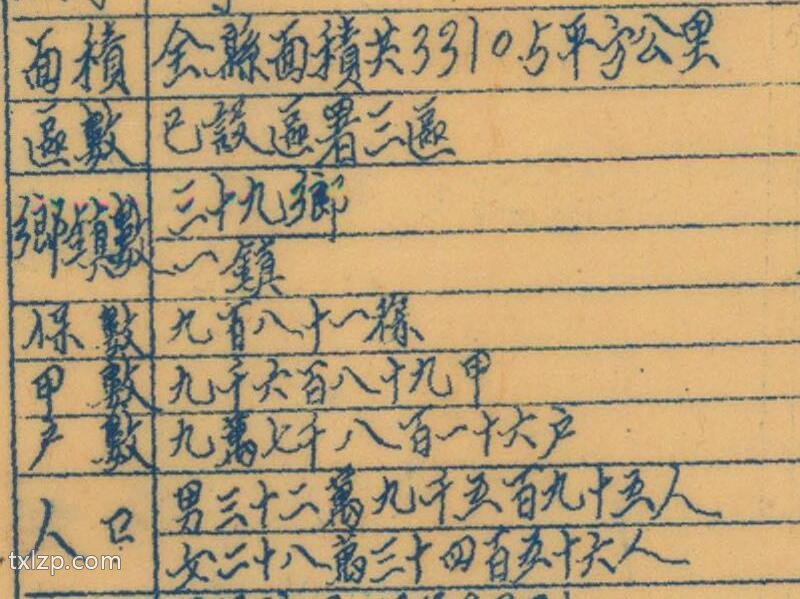 面積 全縣面積共3310.5平方公里
區數 已設區署三區
鄉鎮數 三十九鄉
一鎮
保數 九百八十一保
甲數 九千六百八十九甲
戶數 九萬七千八百一十六戶
人口 男三十二萬九千五百九十五人
女二十八萬三千四百五十六人
txlzp.com